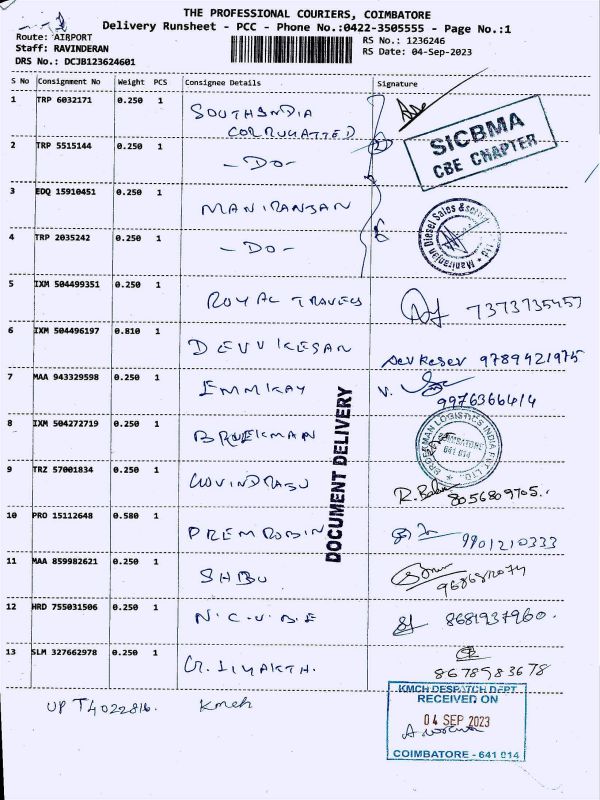 THE PROFESSIONAL COURIERS, COIMBATORE
Delivery Runsheet - PCC - Phone No.:0422-3505555 - Page No.:1
Route: AIRPORT
RS No.: 1236246
Staff: RAVINDERAN
RS Date: 04-Sep-2023
DRS No.: DCJB123624601
S No Consignment No Weight PCS Consignee Details Signature
1 TRP 6032171 0.250 1 SOUTHINDIA
CORRUGATTED
SICBMA
CBE CHAPTER
2 TRP 5515144 0.250 1 -DO-
3 EDQ 15910451 0.250 1 MANIRANJAN
Maniranjan Diesel Sales &
4 TRP 2035242 0.250 1 -DO-
5 IXM 504499351 0.250 1 ROYAL TRAVELS 7373735457
6 IXM 504496197 0.810 1 DEVVIKESAN
9789421975
7 MAA 943329598 0.250 1 EMMKAY V.
9976366414
8 IXM 504272719 0.250 1
LOGISTICS INDIA PVT LTD
COIMBATORE
641 014
9 TRZ 57001834 0.250 1 GOVINDRASU R. Babu 8056809705..
DOCUMENT DELIVERY
10 PRO 15112648 0.580 1 PREM ROBIN 9901210333
11 MAA 859982621 0.250 1 SHBU
12 HRD 755031506 0.250 1 N.C.U.B.E 8681937960.
13 SLM 327662978 0.250 1 G. LIYAKTH.
8678983678
UP T4022816. Kmch
KMCH DESPATCH DEPT
RECEIVED ON
04 SEP 2023
COIMBATORE - 641 014